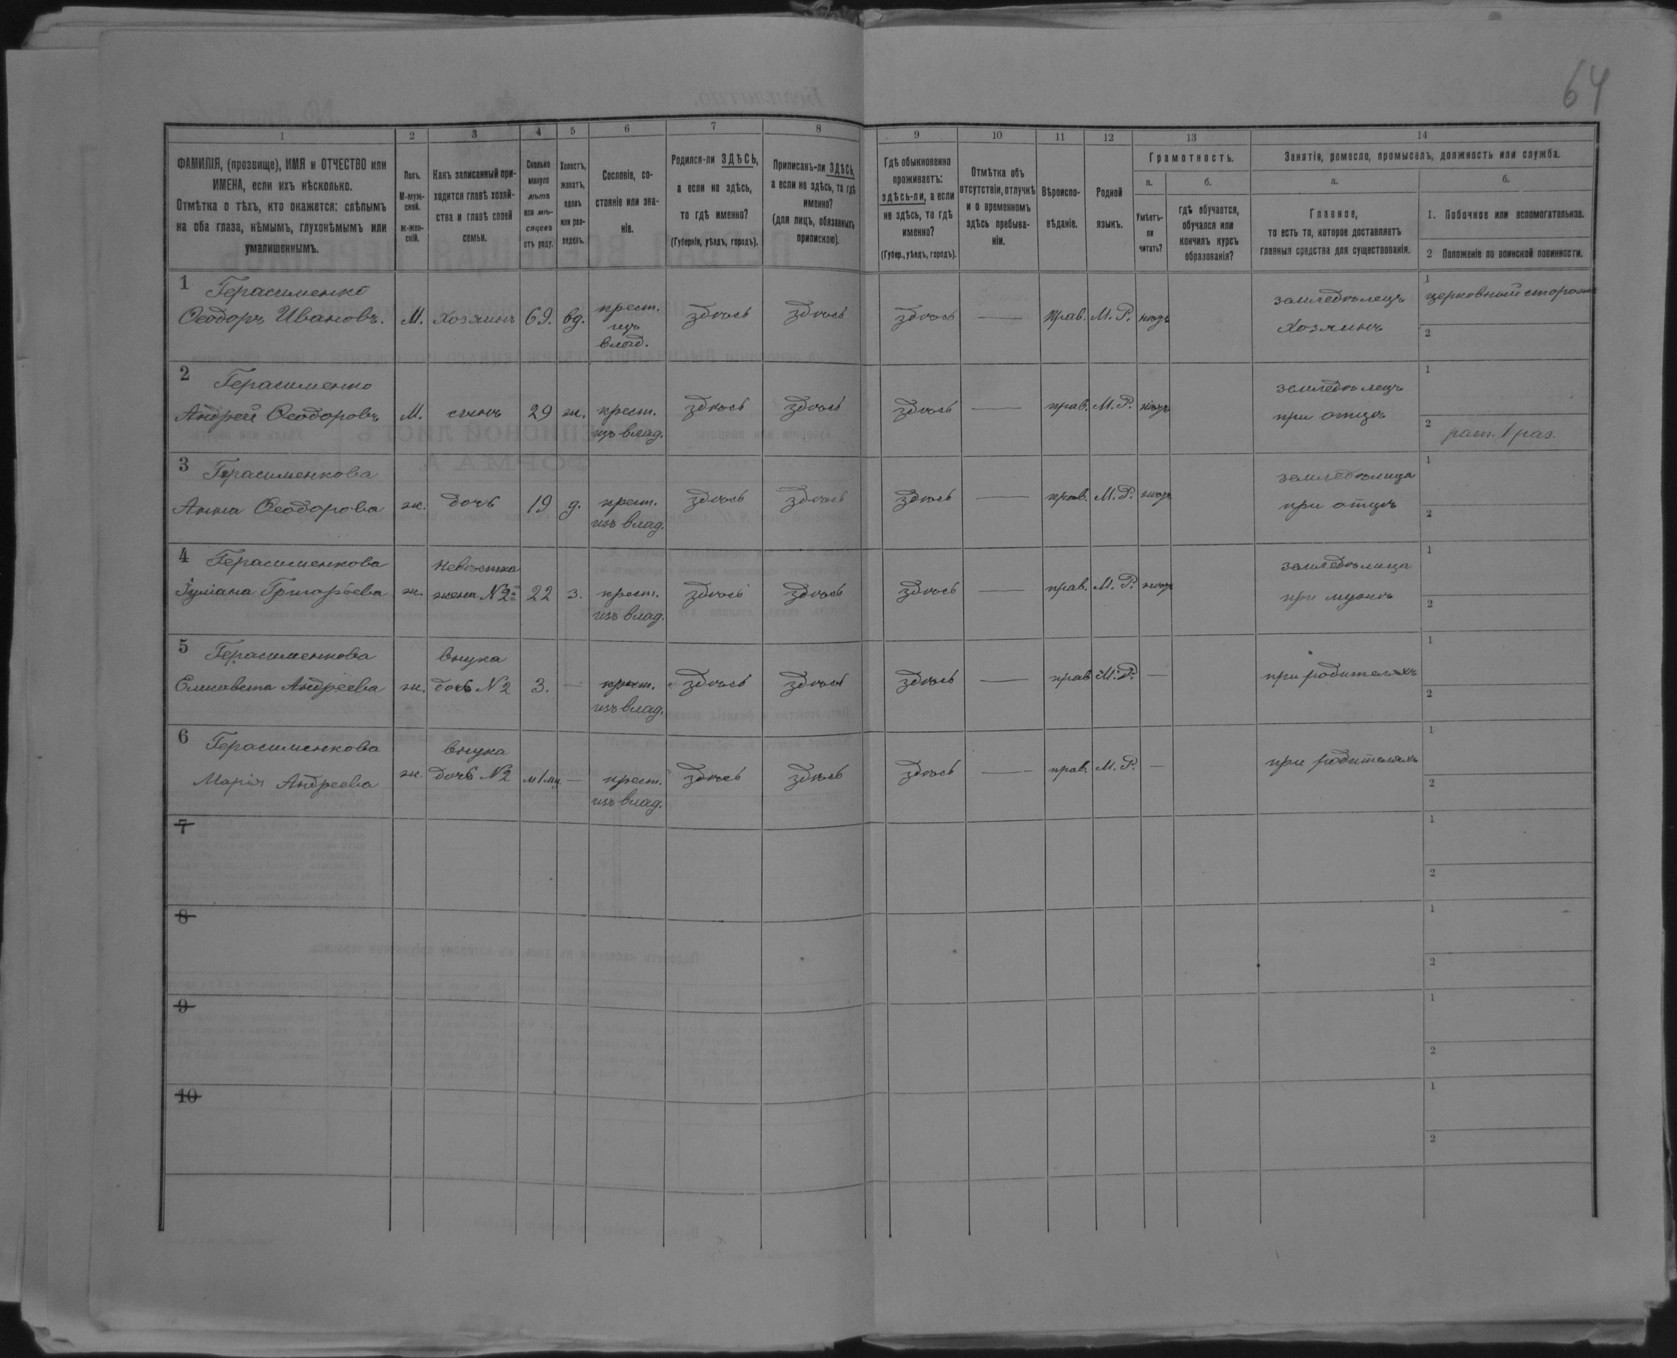 64
1 2 3 4 5 6 7 8 9 10 11 12 13 14
ФАМИЛІЯ, (прозвище), ИМЯ и ОТЧЕСТВО или
ИМЕНА, если ихъ нѣсколько.
Отмѣтка о тѣхъ, кто окажется: слѣпымъ
на оба глаза, нѣмымъ, глухонѣмымъ или
умалишеннымъ.
Полъ.
М-муж-
ской.
ж-жен-
скій.
Какъ записанный при-
ходится главѣ хозяй-
ства и главѣ своей
семьи.
Сколько
минуло
лѣтъ
или мѣ-
сяцевъ
отъ роду.
Холостъ,
женатъ,
вдовъ
или раз-
веденъ.
Сословіе, со-
стояніе или зва-
ніе.
Родился-ли ЗДѢСЬ,
а если не здѣсь,
то гдѣ именно?
(Губернія, уѣздъ, городъ).
Приписанъ-ли ЗДѢСЬ,
а если не здѣсь, то гдѣ
именно?
(для лицъ, обязанныхъ
припискою).
Гдѣ обыкновенно
проживаетъ:
здѣсь-ли, а если
не здѣсь, то гдѣ
именно?
(Губер., уѣздъ, городъ).
Отмѣтка объ
отсутствіи, отлучкѣ
и о временномъ
здѣсь пребыва-
ніи.
Вѣроиспо-
вѣданіе.
Родной
языкъ.
Грамотность.
а.
Умѣетъ-
ли
читать?
б.
гдѣ обучается,
обучался или
кончилъ курсъ
образованія?
Занятія, ремесло, промыселъ, должность или служба.
а.
Главное,
то есть то, которое доставляетъ
главныя средства для существованія.
б.
1. Побочное или вспомогательное.
2 Положеніе по воинской повинности.
1 Герасименко
Ѳеодоръ Ивановъ. М. хозяинъ 69. вд. крест. изъ влад. здѣсь здѣсь здѣсь — Прав. М. Р. нѣтъ земледѣлецъ хозяинъ
1 церковный сторожъ
2
2 Герасименко
Андрей Ѳеодоровъ М. сынъ 29 ж. крест. изъ влад. здѣсь здѣсь здѣсь — прав. М. Р. нѣтъ земледѣлецъ при отцѣ
1
2 рат. 1 раз.
3 Герасименкова
Анна Ѳеодорова ж. дочь 19 д. крест. изъ влад. здѣсь здѣсь здѣсь — прав. М. Р. нѣтъ земледѣлица при отцѣ
1
2
4 Герасименкова
Іуліана Григорьева ж. невѣстка жена №2й 22 з. крест. изъ влад. здѣсь здѣсь здѣсь — прав. М. Р. нѣтъ земледѣлица при мужѣ
1
2
5 Герасименкова
Елисавета Андреева ж. внука дочь №2 3. — крест. изъ влад. здѣсь здѣсь здѣсь — прав. М. Р. — при родителяхъ
1
2
6 Герасименкова
Марія Андреева ж. внука дочь №2 — крест. изъ влад. здѣсь здѣсь здѣсь — прав. М. Р. — при родителяхъ
1
2
7
1
2
8
1
2
9
1
2
10
1
2